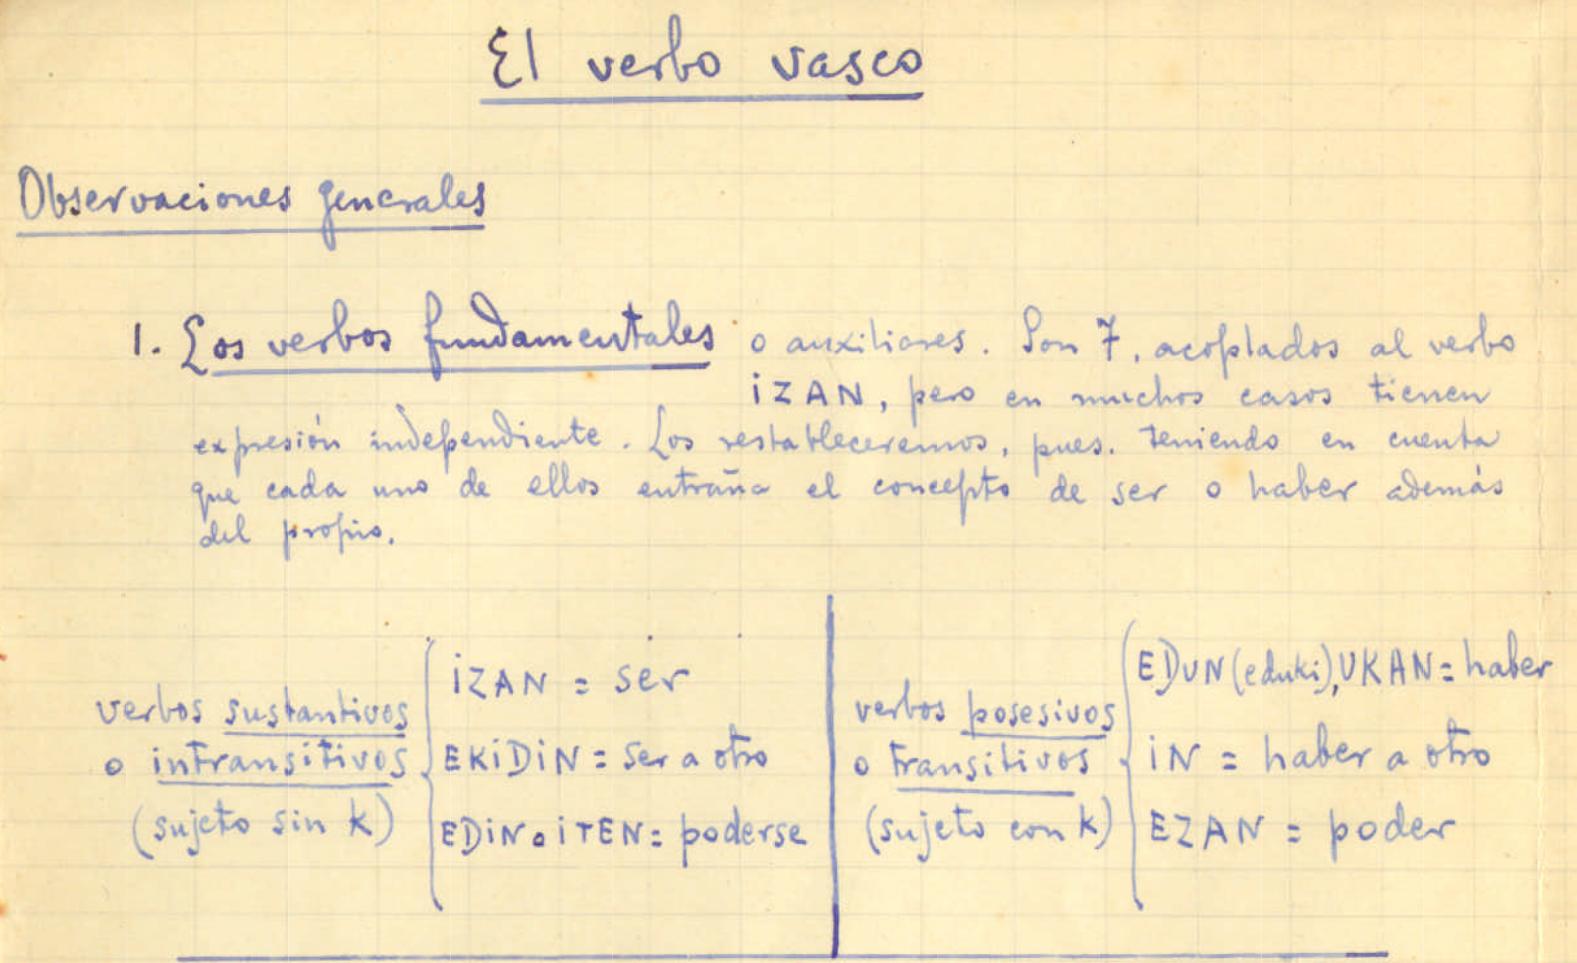 El verbo vasco
Observaciones generales
1. Los verbos fundamentales o auxiliares. Son 7, acoplados al verbo
IZAN, pero en muchos casos tienen
expresión independiente. Los restableceremos, pues. teniendo en cuenta
que cada uno de ellos entraña el concepto de ser o haber además
del propio.
verbos sustantivos
o intransitivos
(sujeto sin k)
IZAN = ser
EKIDIN = ser a otro
EDIN o ITEN = poderse
verbos posesivos
o transitivos
(sujeto con k)
EDUN (eduki), UKAN = haber
IN = haber a otro
EZAN = poder